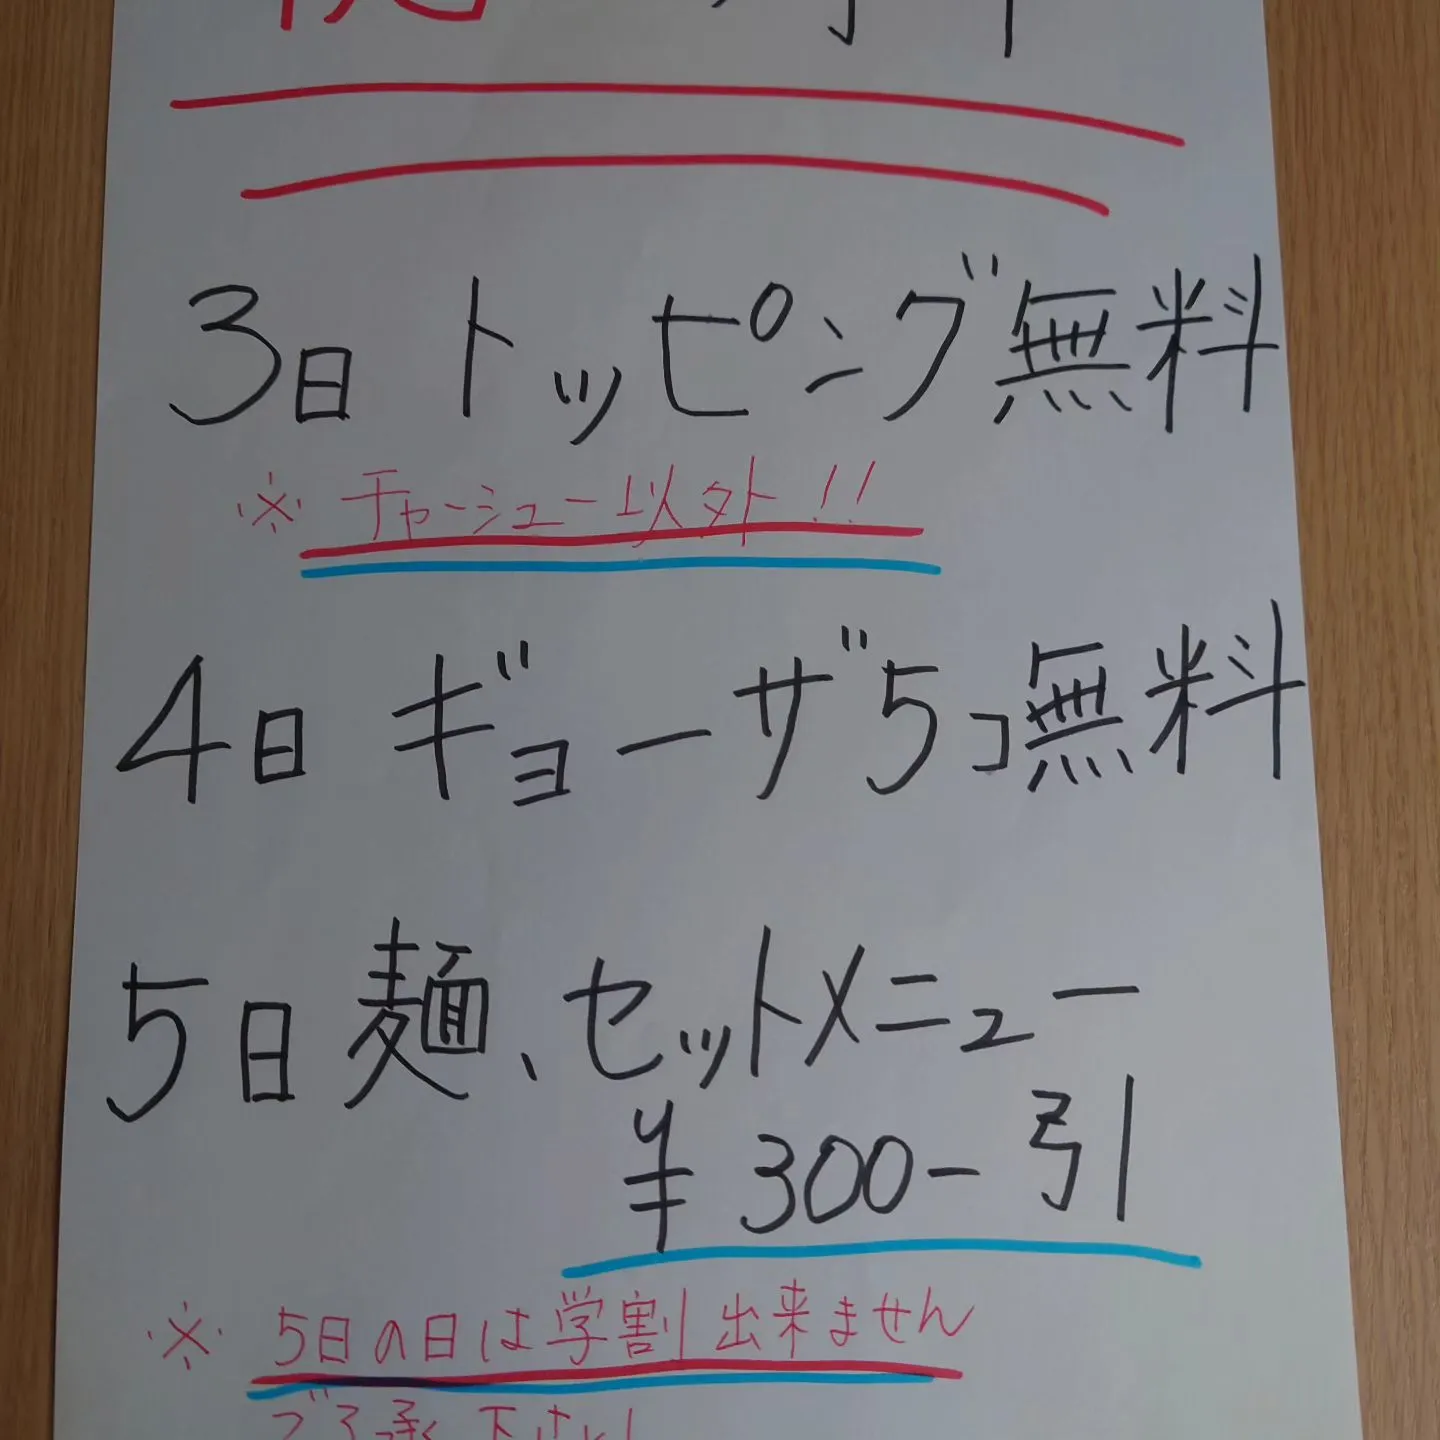 3日 トッピング無料
※ チャーシュー以外!!
4日 ギョーザ5コ無料
5日 麺、セットメニュー
¥300-引
※ 5日の日は学割出来ません
ご了承下さい